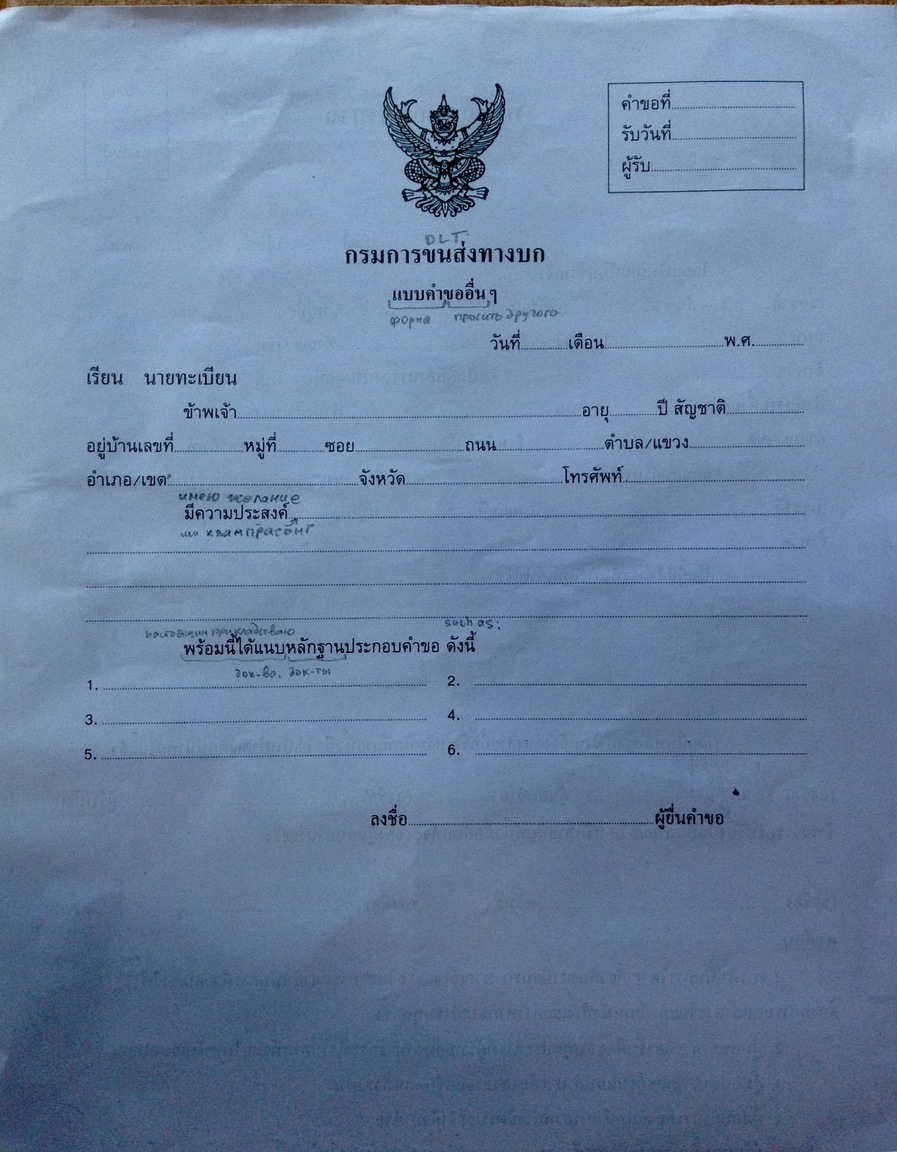 คำขอที่
รับวันที่
ผู้รับ
DLT
กรมการขนส่งทางบก
แบบคำขออื่น ๆ
форма просить другого
วันที่ เดือน พ.ศ.
เรียน นายทะเบียน
ข้าพเจ้า อายุ ปี สัญชาติ
อยู่บ้านเลขที่ หมู่ที่ ซอย ถนน ตำบล/แขวง
อำเภอ/เขต จังหวัด โทรศัพท์
имею желание
มีความประสงค์
ми квампрасонг
such as:
พร้อมนี้ได้แนบหลักฐานประกอบคำขอ ดังนี้
док-во, док-ты
1. 2.
3. 4.
5. 6.
ลงชื่อ ผู้ยื่นคำขอ